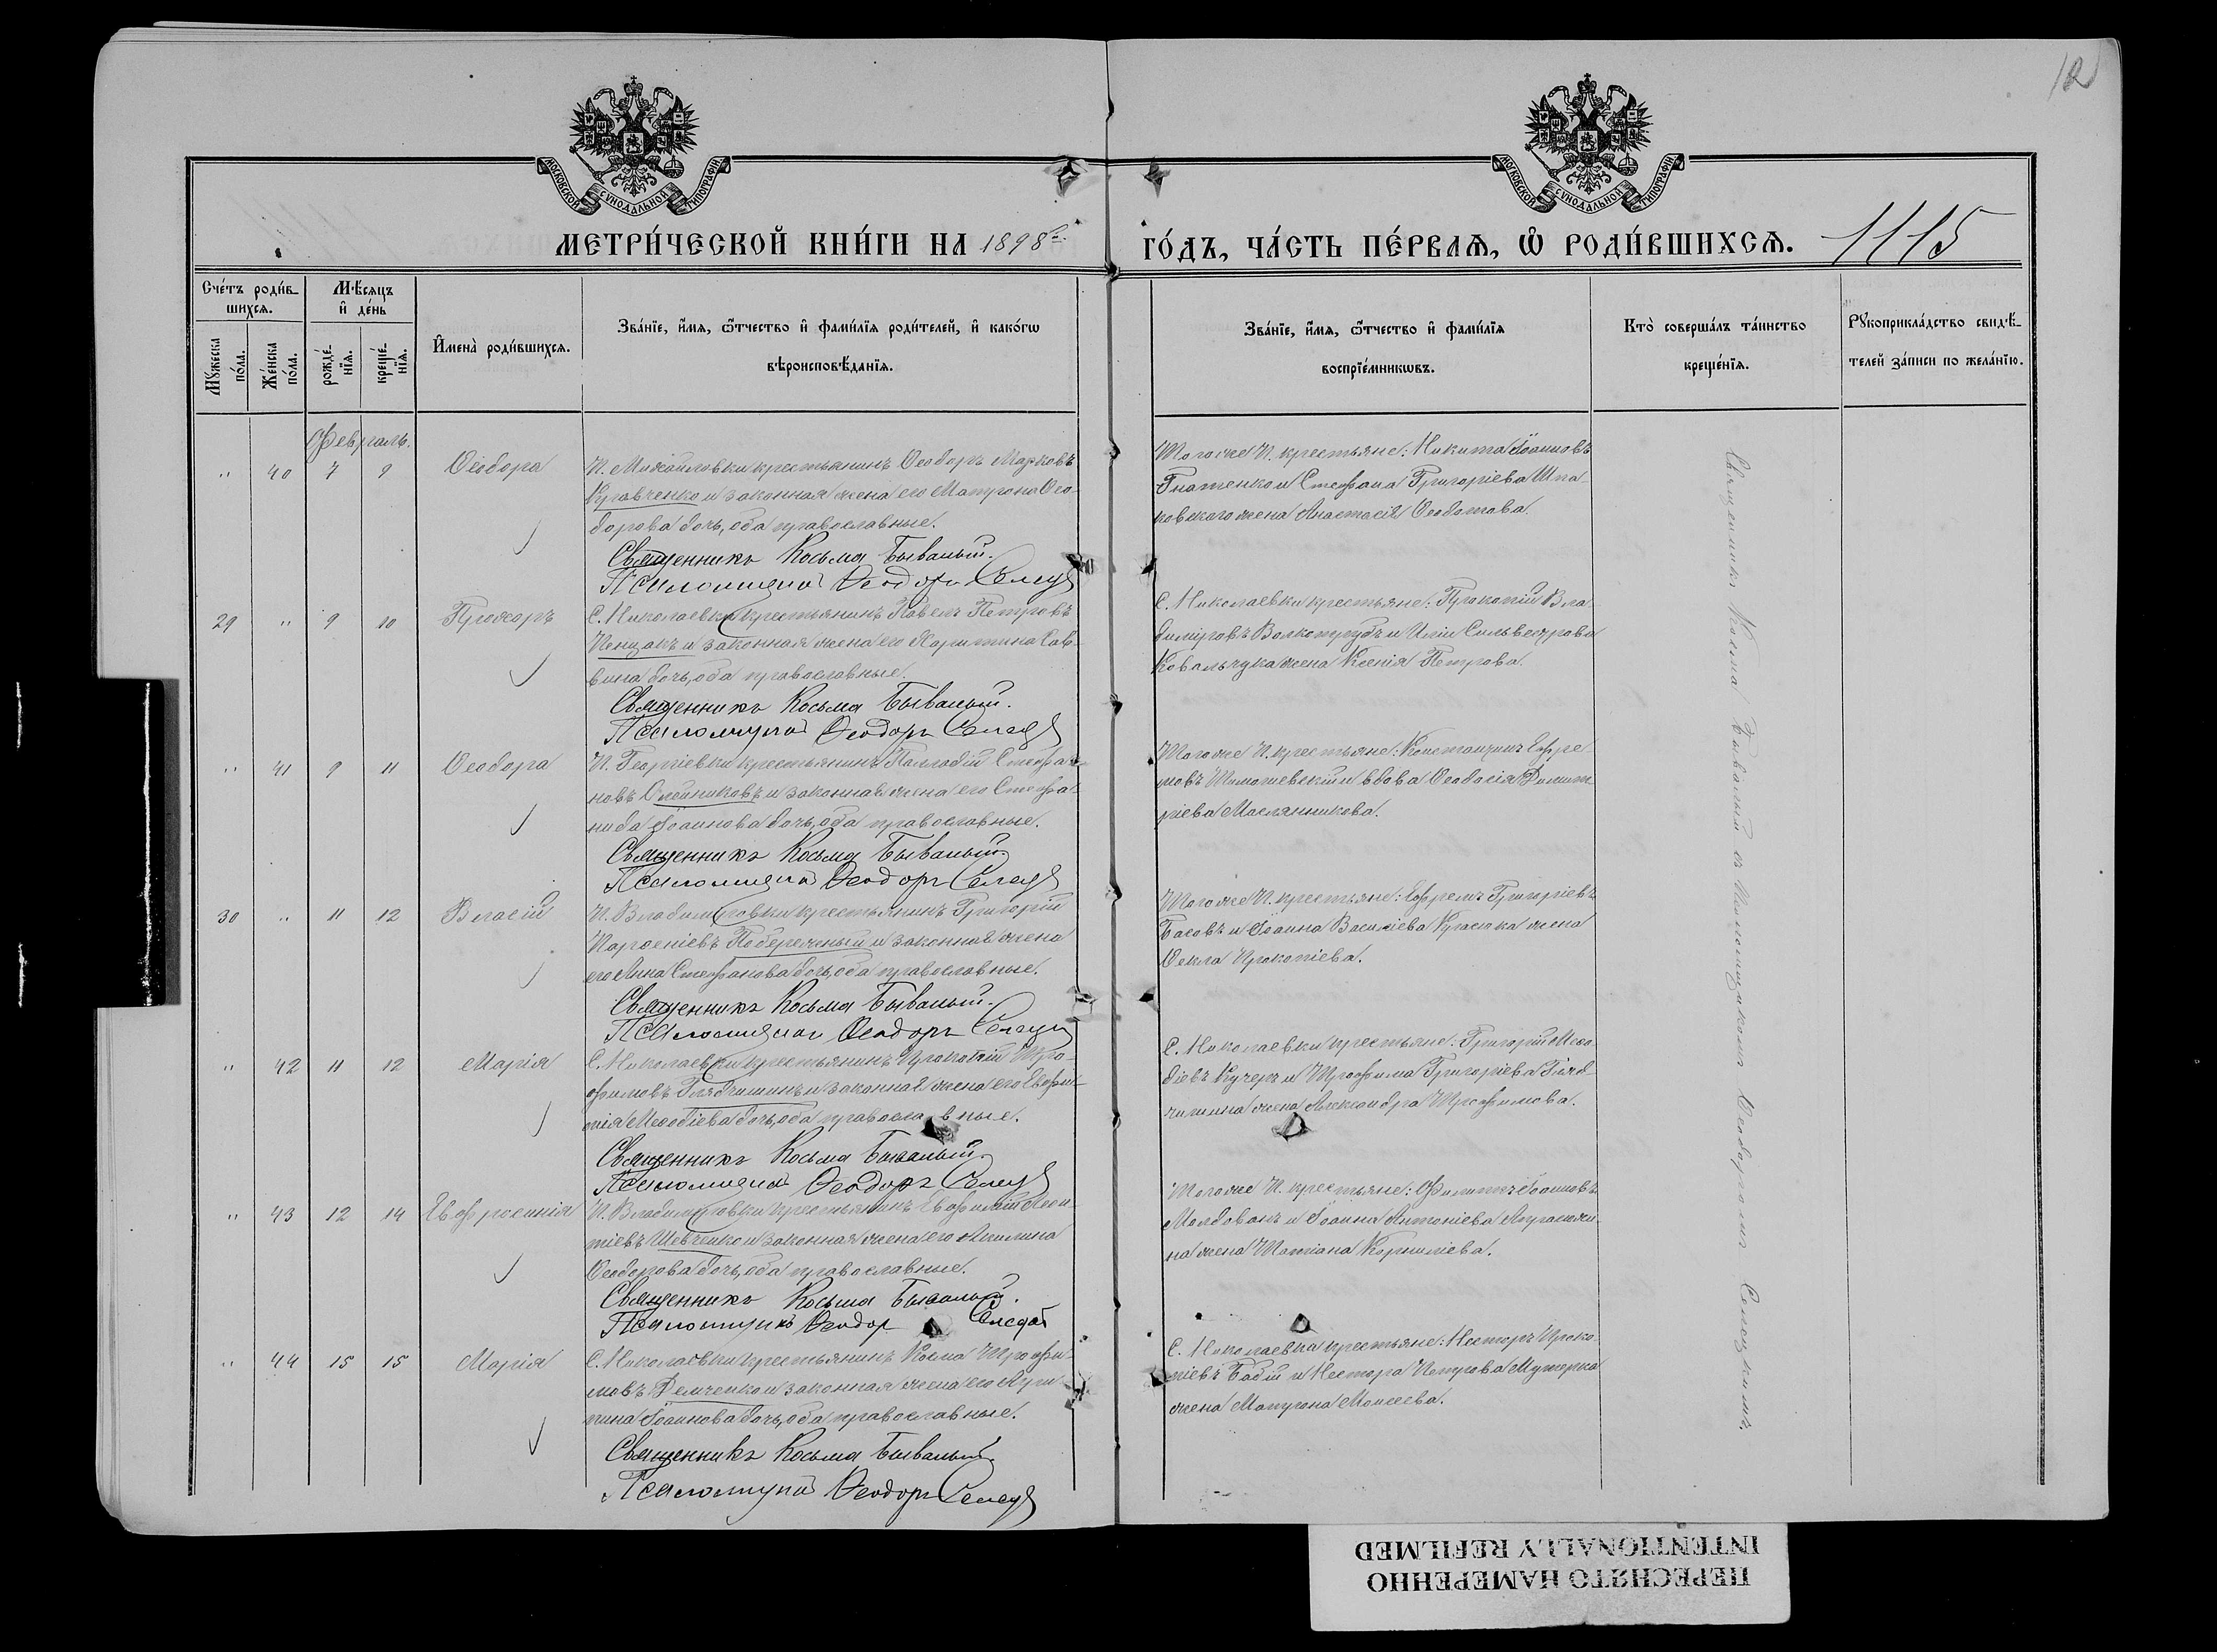 12
МОСКОВСКОЙ СѴНОДАЛЬНОЙ ТИПОГРАФІИ
МОСКОВСКОЙ СѴНОДАЛЬНОЙ ТИПОГРАФІИ
МЕТРИ́ЧЕСКОЙ КНИ́ГИ НА 1898 г. ГО́ДЪ, ЧА́СТЬ ПЕ́РВАѦ, Ѽ РОДИ́ВШИХСѦ. 1115
Сче́тъ роди́в-
шихсѧ.
Мѣ́сѧцъ
и҆ де́нь
Мꙋ́жеска
по́ла.
Же́нска
по́ла.
рожде́-
нїѧ.
креще́-
нїѧ.
И҆мена̀ роди́вшихсѧ.
Зва́нїе, и҆́мѧ, ѻ҆́тчество и҆ фами́лїѧ роди́телей, и҆ како́гѡ
вѣроисповѣ́данїѧ.
Зва́нїе, и҆́мѧ, ѻ҆́тчество и҆ фами́лїѧ
воспрїе́мникѡвъ.
Кто̀ соверша́лъ та́инство
креще́нїѧ.
Рꙋкоприкла́дство свидѣ́-
телей за́писи по жела́нїю.
Февраль.
" 40 7 9 Ѳеодора
П. Михайловки крестьянинъ Ѳеодоръ Марковъ
Кравченко и законная жена его Матрона Ѳео-
дорова дочь, оба православные.
Священникъ Косьма Бывалый.
Псаломщикъ Ѳеодоръ
Того же П. крестьяне: Никита Іоанновъ
Гнатенко и Стефана Григоріева Шпа-
ковского жена Анастасія Ѳеодотова.
29 " 9 10 Прохоръ
С. Николаевки крестьянинъ Павелъ Петровъ
и законная жена его Харитина Сав-
вина дочь, оба православные.
Священникъ Косьма Бывалый.
Псаломщикъ Ѳеодоръ
С. Николаевки крестьяне: Прокопій Вла-
диміровъ Волкотрубъ и Иліи Сильвестрова
Ковальчука жена Ксенія Петрова.
" 41 9 11 Ѳеодора
П. Георгіевки крестьянинъ Палладій Стефа-
новъ Олейниковъ и законная жена его Стефа-
нида Іоаннова дочь, оба православные.
Священникъ Косьма Бывалый.
Псаломщикъ Ѳеодоръ
Того же П. крестьяне: Константинъ Ефре-
мовъ Томашевскій и вдова Ѳеодосія Димит-
ріева Маслянникова.
30 " 11 12 Власій
П. Владиміровки крестьянинъ Григорій
Парѳеніевъ Побережный и законная жена
его Анна Стефанова дочь, оба православные.
Священникъ Косьма Бывалый.
Псаломщикъ Ѳеодоръ
Того же П. крестьяне: Ефремъ Григоріевъ
Басовъ и Іоанна Василіева жена
Ѳекла Прокопіева.
" 42 11 12 Марія
С. Николаевки крестьянинъ Прокопій Тро-
фимовъ и законная жена его Евфи-
мія Меѳодіева дочь, оба православные.
Священникъ Косьма Бывалый.
Псаломщикъ Ѳеодоръ
С. Николаевки крестьяне: Григорій Меѳо-
діевъ Кучеръ и Трофима Григоріева
жена Александра Трофимова.
" 43 12 14 Евфросинія
П. Владиміровки крестьянинъ Евфимій Леон-
тіевъ Шевченко и законная жена его Акилина
Ѳеодорова дочь, оба православные.
Священникъ Косьма Бывалый.
Псаломщикъ Ѳеодор
Того же П. крестьяне: Филиппъ Іоанновъ
Молдованъ и Іоанна Антоніева
жена Татіана Корниліева.
" 44 15 15 Марія
С. Николаевки крестьянинъ Косма Трофи-
мовъ Демченко и законная жена его Агри-
пина Іоаннова дочь, оба православные.
Священникъ Косьма Бывалый.
Псаломщикъ Ѳеодоръ
С. Николаевки крестьяне: Несторъ Проко-
піевъ Бабій и Нестора Петрова
жена Матрона Моисеева.
Священникъ Косьма Бывалый съ Псаломщикомъ Ѳеодоромъ Селецкимъ.
ПЕРЕСНЯТО НАМЕРЕННО
INTENTIONALLY REFILMED